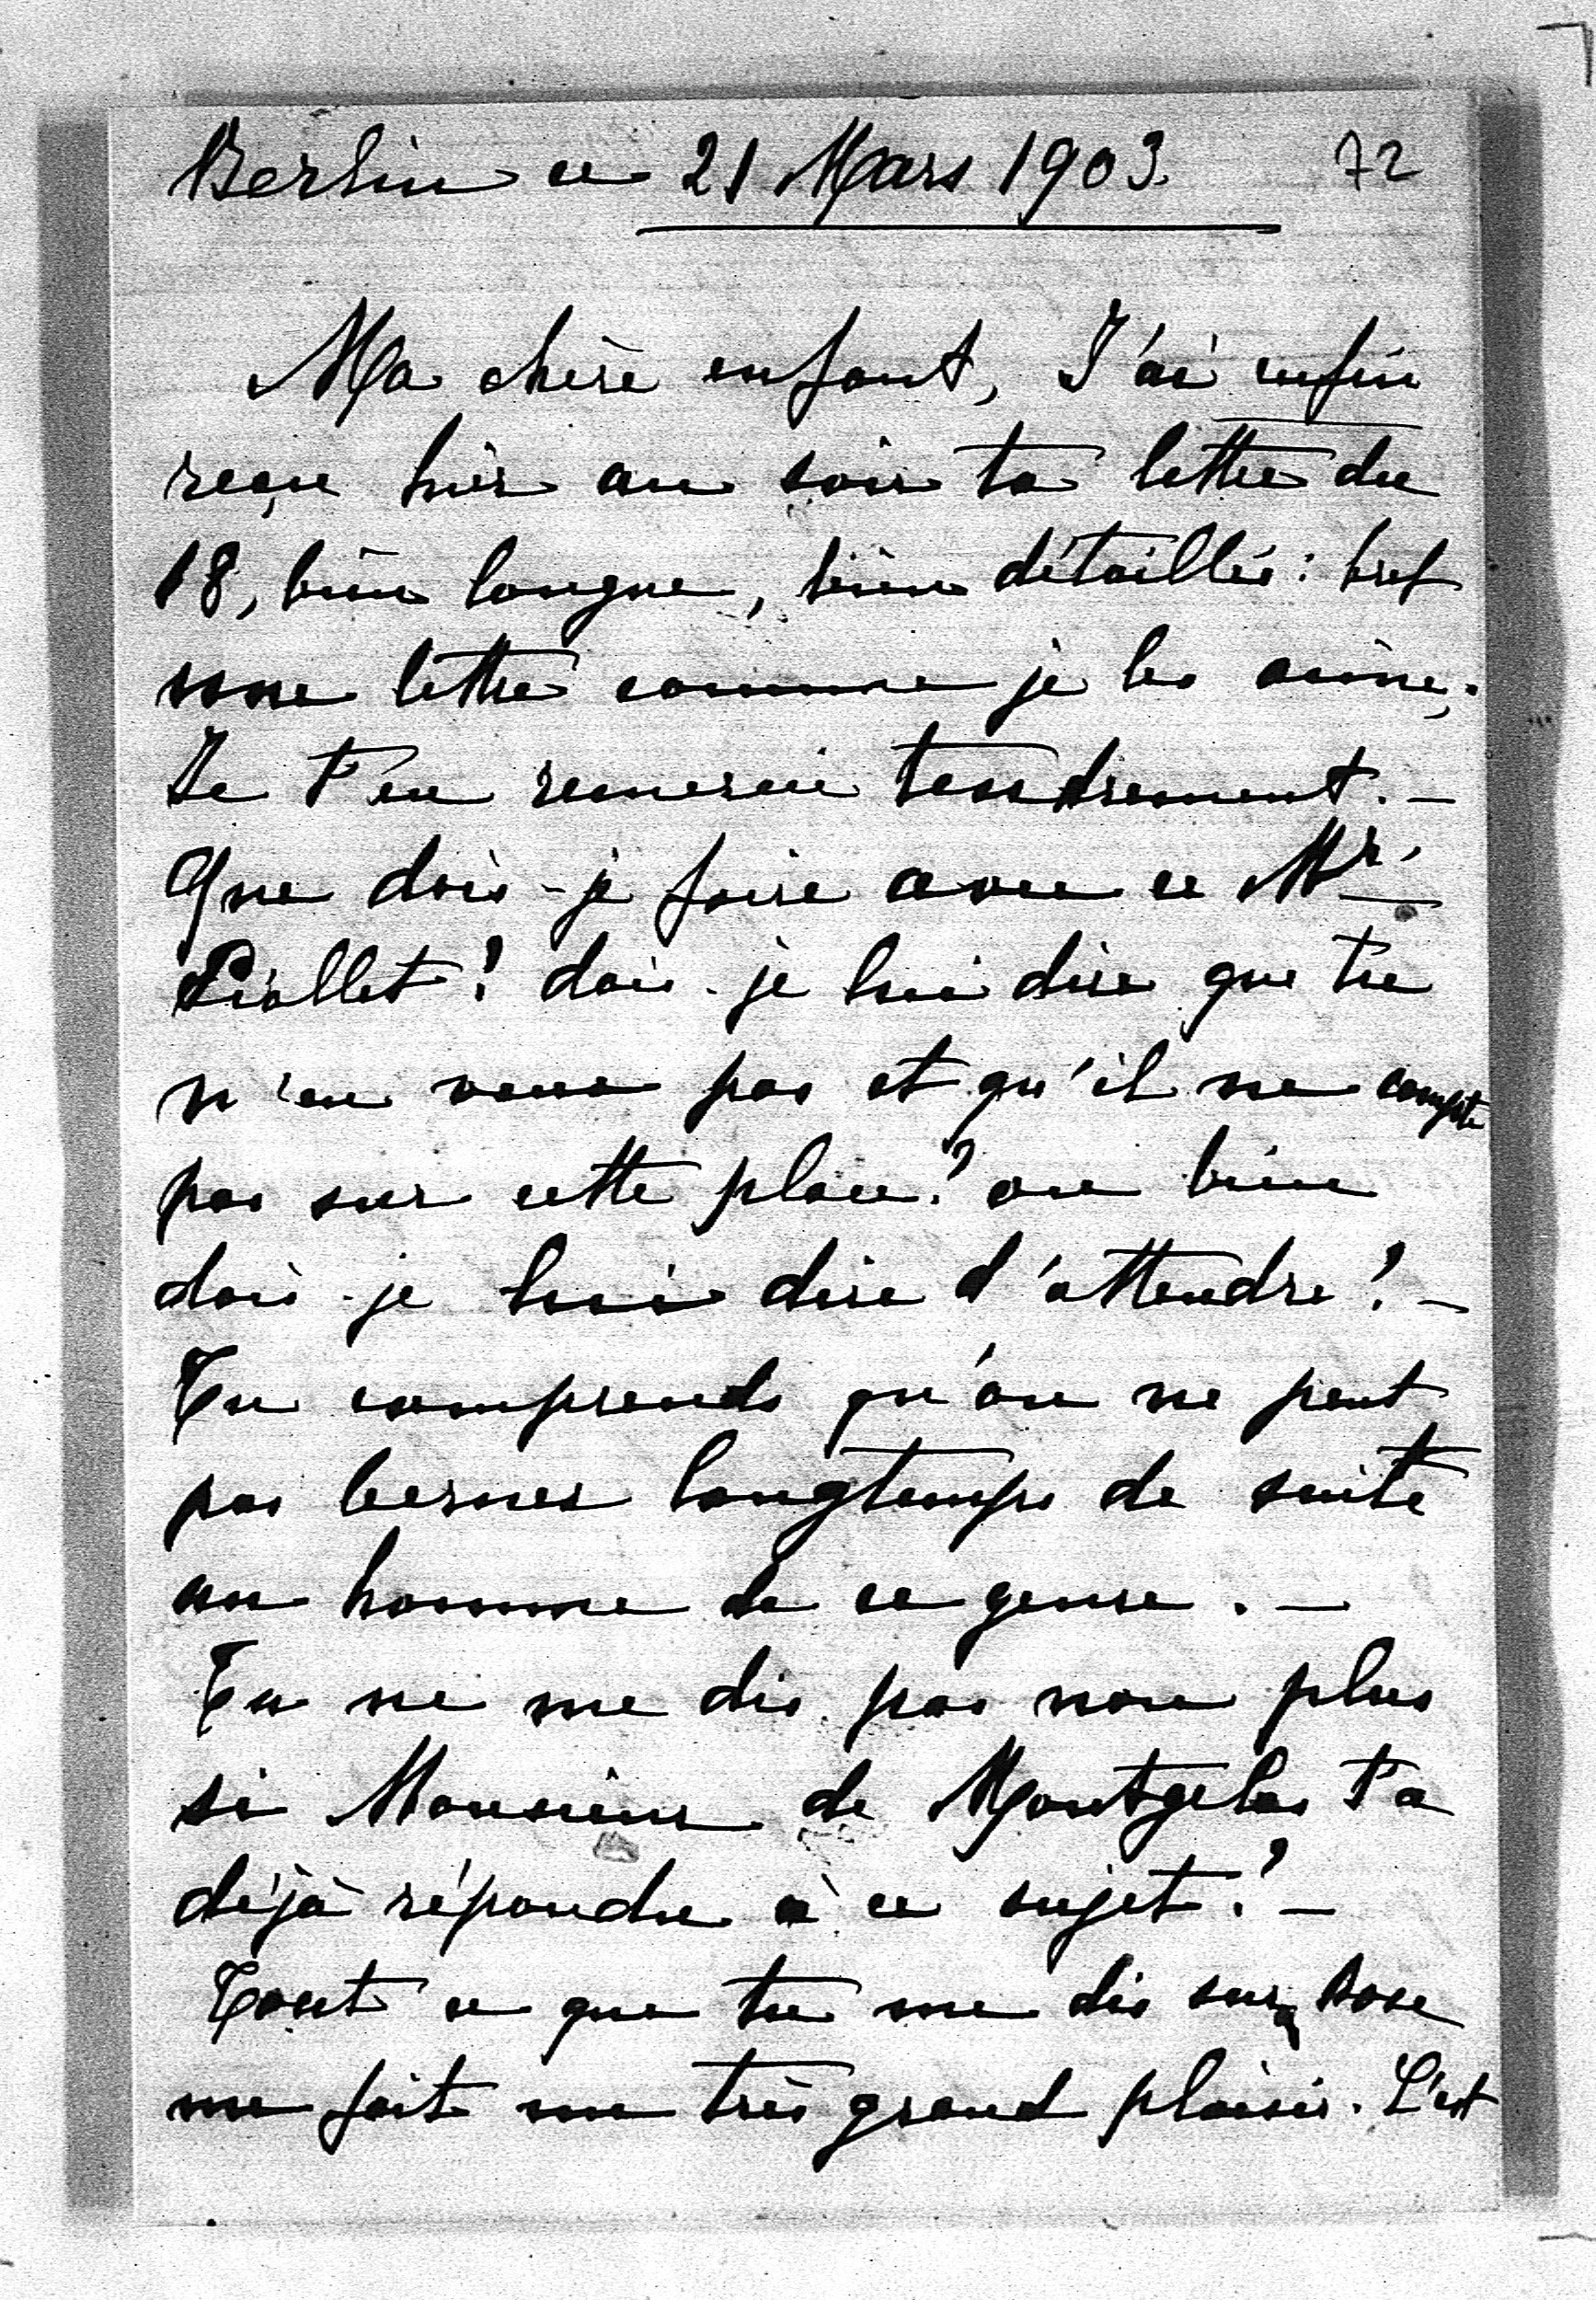 Berlin ce 21 Mars 1903. 72
Ma chère enfant, J'ai enfin
reçu hier au soir ta lettre du
18, bien longue, bien détaillée: bref
une lettre comme je les aime,.
Je t'en remercie tendrement. —
Que dois-je faire avec ce Mr.
Piollet? dois-je lui dire que tu
n'en veux pas et qu'il ne compte
pas sur cette place? ou bien
dois-je lui dire d'attendre? —
Tu comprends qu'on ne peut
pas berner longtemps de suite
un homme de ce genre. —
Tu ne me dis pas non plus
si Monsieur de Montgelas t'a
déjà répondu à ce sujet? —
Tout ce que tu me dis sur
me fait un très grand plaisir. C'est